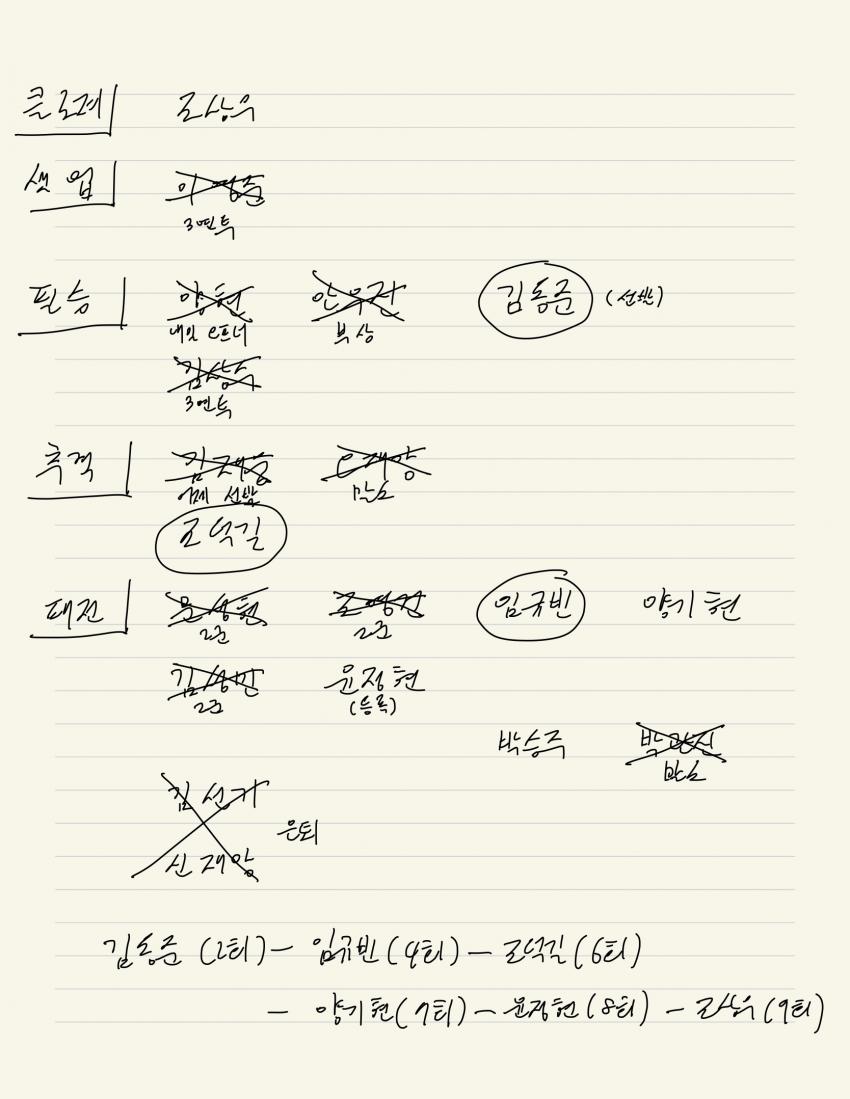 클로져 조상우
셋업 이영준
3연투
필승 양현 안우진 김동준 (선발)
내일 오프너 부상
김상수
3연투
추격 김재웅 오재영
어제 선발 말소
조덕길
패전 문성현 조영건 임규빈 양기현
2군 2군
김성민 윤정현
2군 (등록)
박승주 박관진
말소
김선기
은퇴
신재영
김동준 (2회) - 임규빈 (4회) - 조덕길 (6회)
- 양기현 (7회) - 윤정현 (8회) - 조상우 (9회)